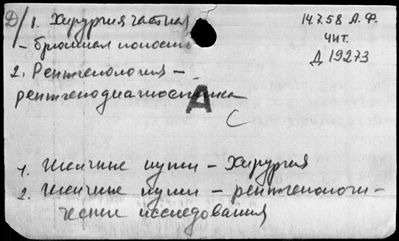 Д/ 1. Хирургия частная
14758 А.Ф.
- брюшная полость
чит.
Д 19273
2. Рентгенология -
рентгенодиагностика
А
С
1. Желчные пути - Хирургия
2. Желчные пути - рентгенологи-
ческие исследования